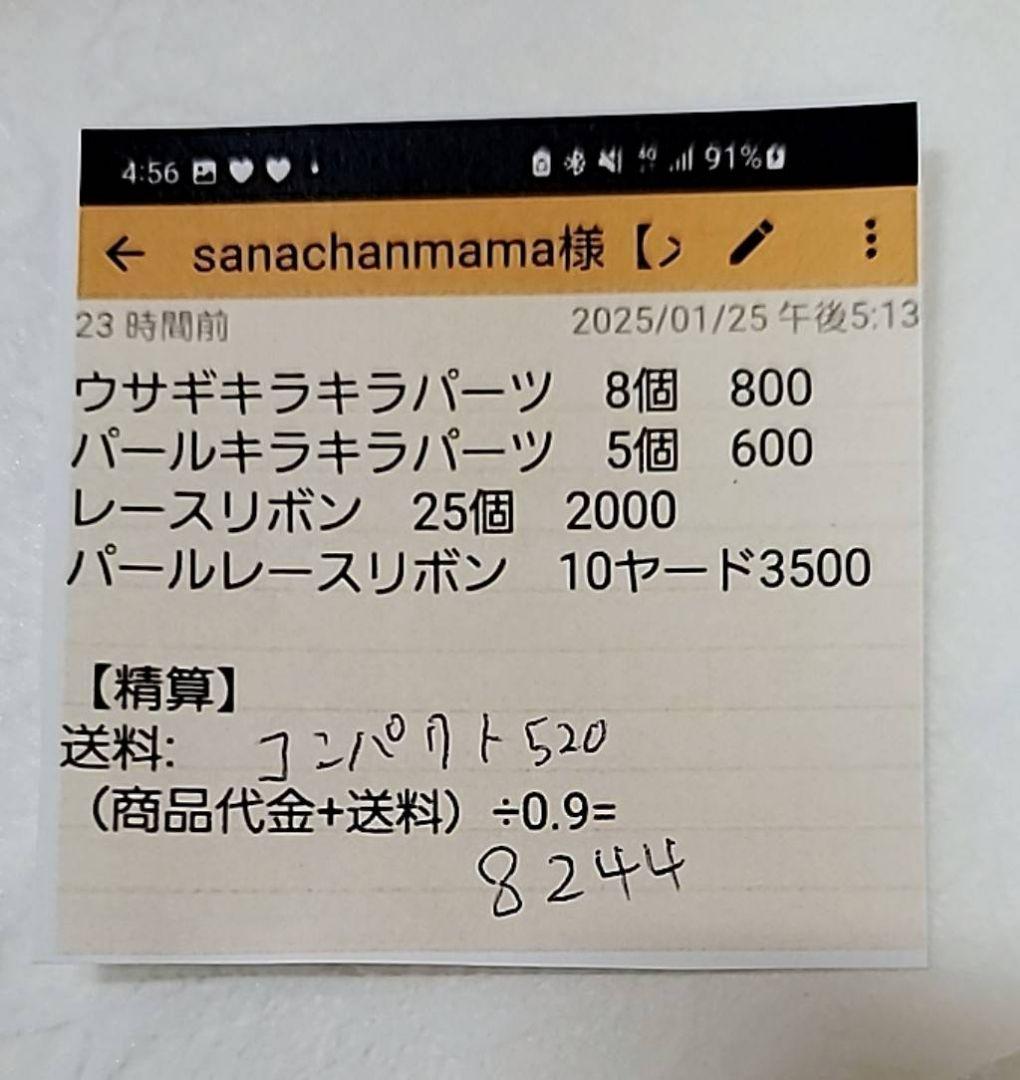 4:56 4G 91%
sanachanmama様【
23 時間前 2025/01/25 午後5:13
ウサギキラキラパーツ 8個 800
パールキラキラパーツ 5個 600
レースリボン 25個 2000
パールレースリボン 10ヤード3500
【精算】
送料: コンパクト520
（商品代金+送料）÷0.9=
8244